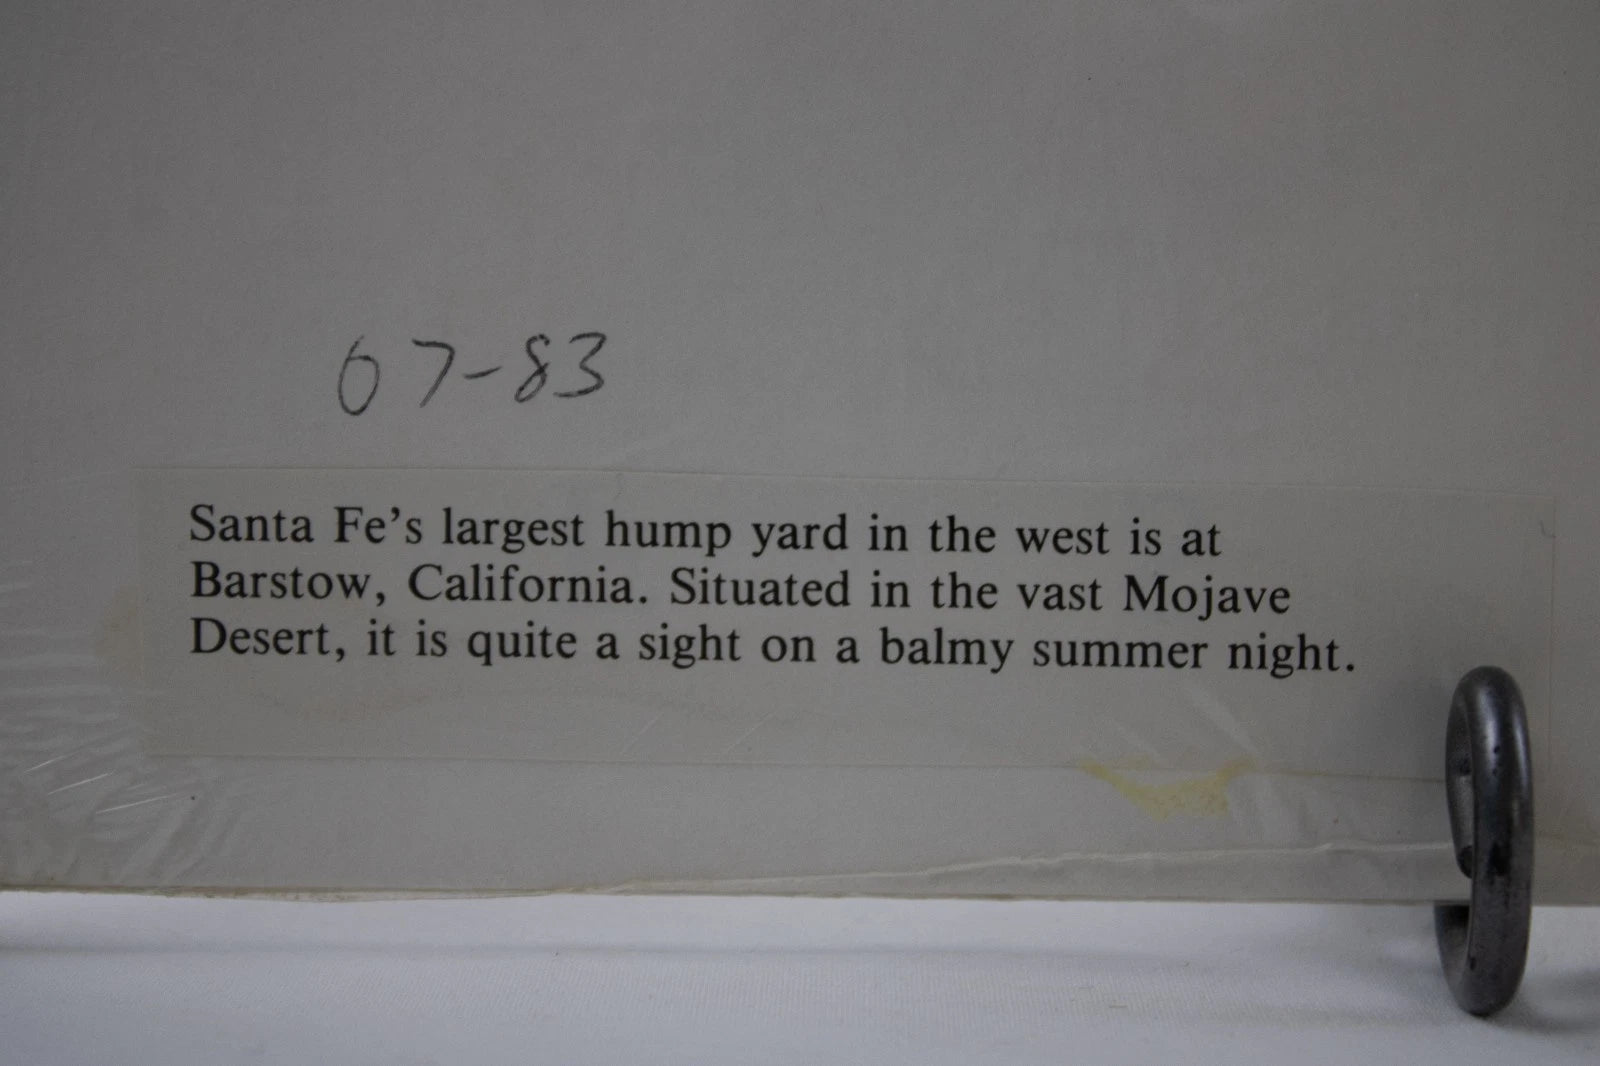 07-83
Santa Fe's largest hump yard in the west is at
Barstow, California. Situated in the vast Mojave
Desert, it is quite a sight on a balmy summer night.